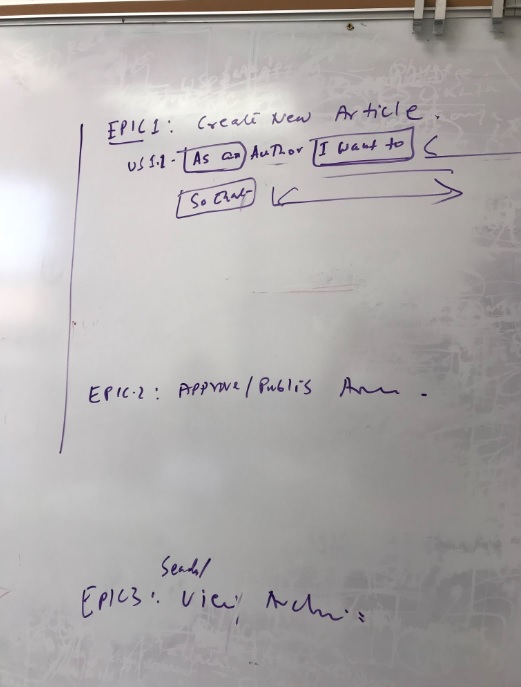 EPIC1: Create New Article.
US 1.1 - As an Author I want to
So that
EPIC-2: APPROVE/Publis
EPIC3: View